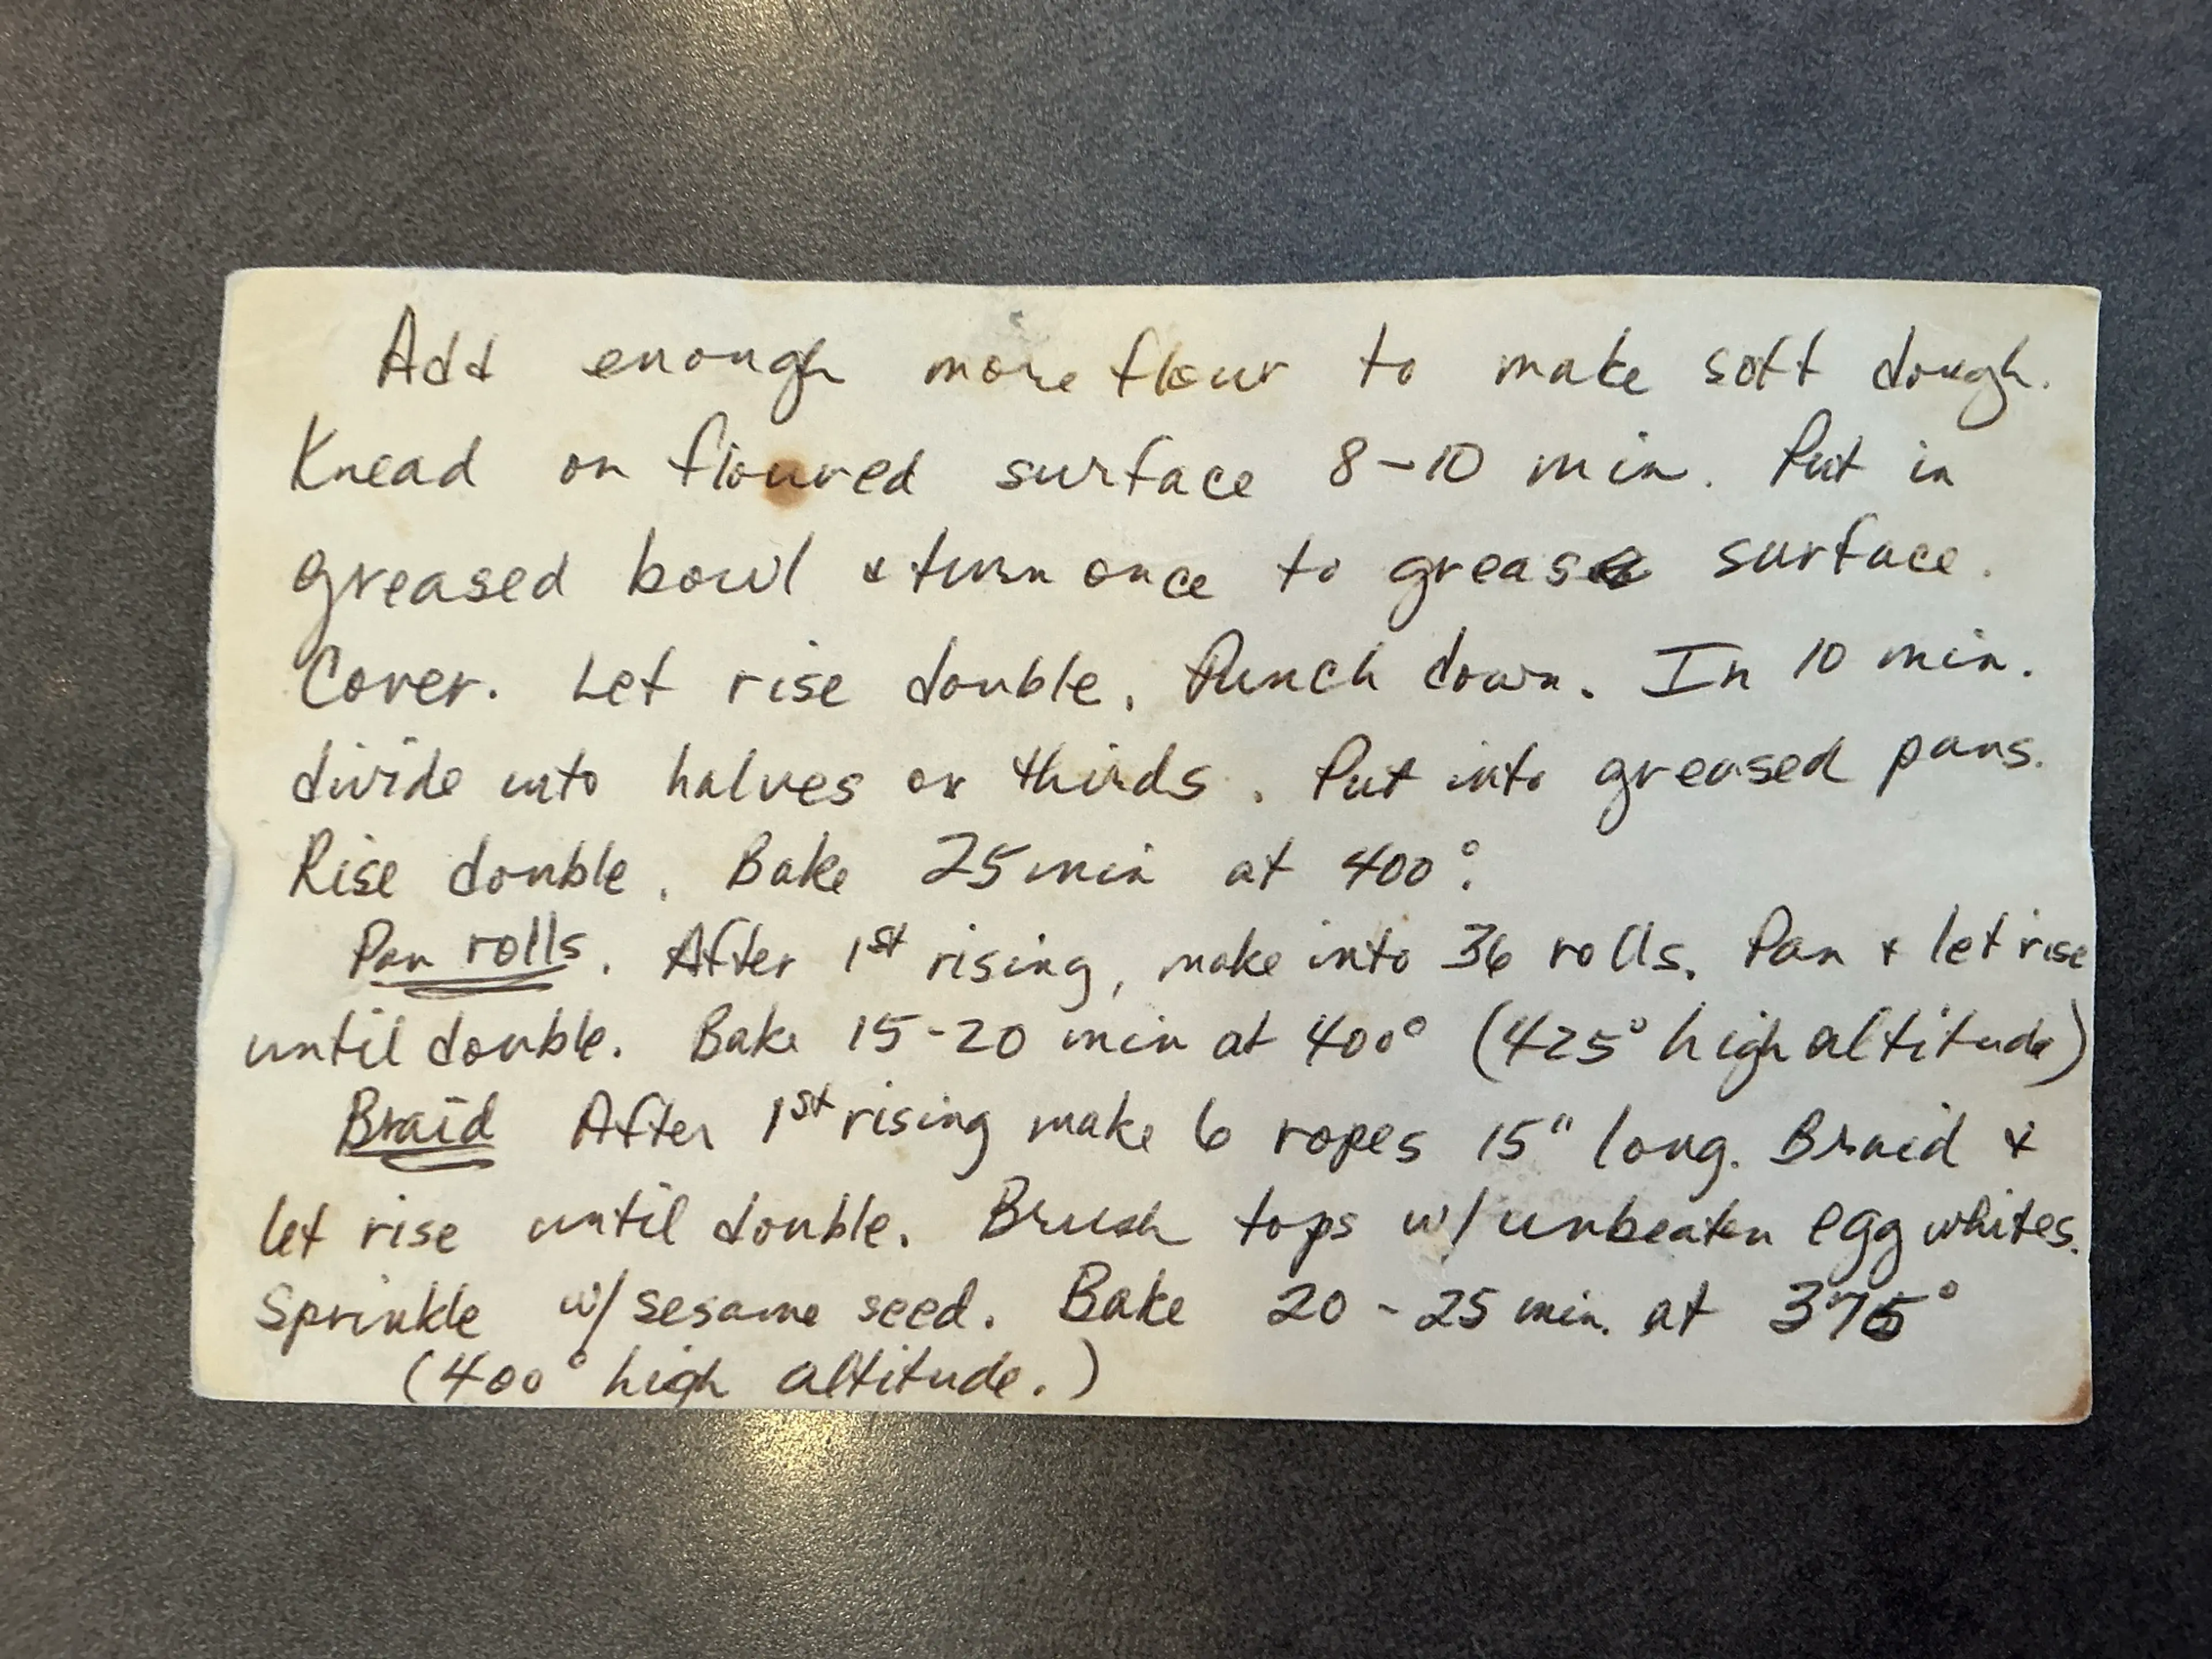 Add enough more flour to make soft dough.
Knead on floured surface 8-10 min. Put in
greased bowl & turn once to grease surface.
Cover. Let rise double. Punch down. In 10 min.
divide into halves or thirds. Put into greased pans.
Rise double. Bake 25 min at 400°.
Pan rolls. After 1st rising, make into 36 rolls. Pan & let rise
until double. Bake 15-20 min at 400° (425° high altitude)
Braid After 1st rising make 6 ropes 15" long. Braid &
let rise until double. Brush tops w/ unbeaten egg whites.
Sprinkle w/ sesame seed. Bake 20-25 min. at 375°
(400° high altitude.)